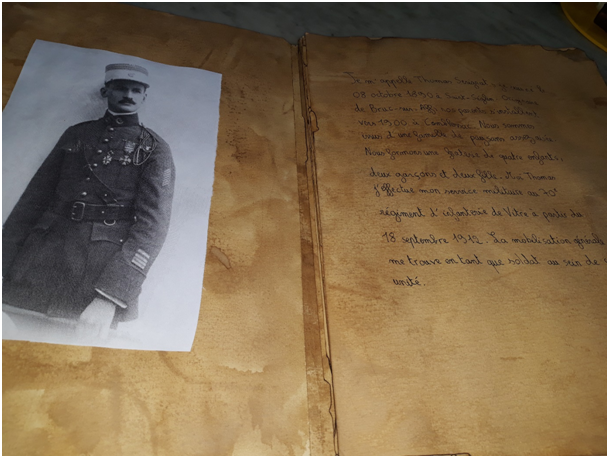 Je m'appelle Thomas
08 octobre 1890 à
de
vers 1900 à Nous sommes
issus d'une famille de paysans
fratrie de quatre enfants,
deux garçons et deux filles. Moi Thomas
j'effectue mon service militaire au 70e
régiment d'infanterie de Vitré à partir du
18 septembre 1912. La mobilisation générale
me trouve en tant que soldat au sein de
unité.